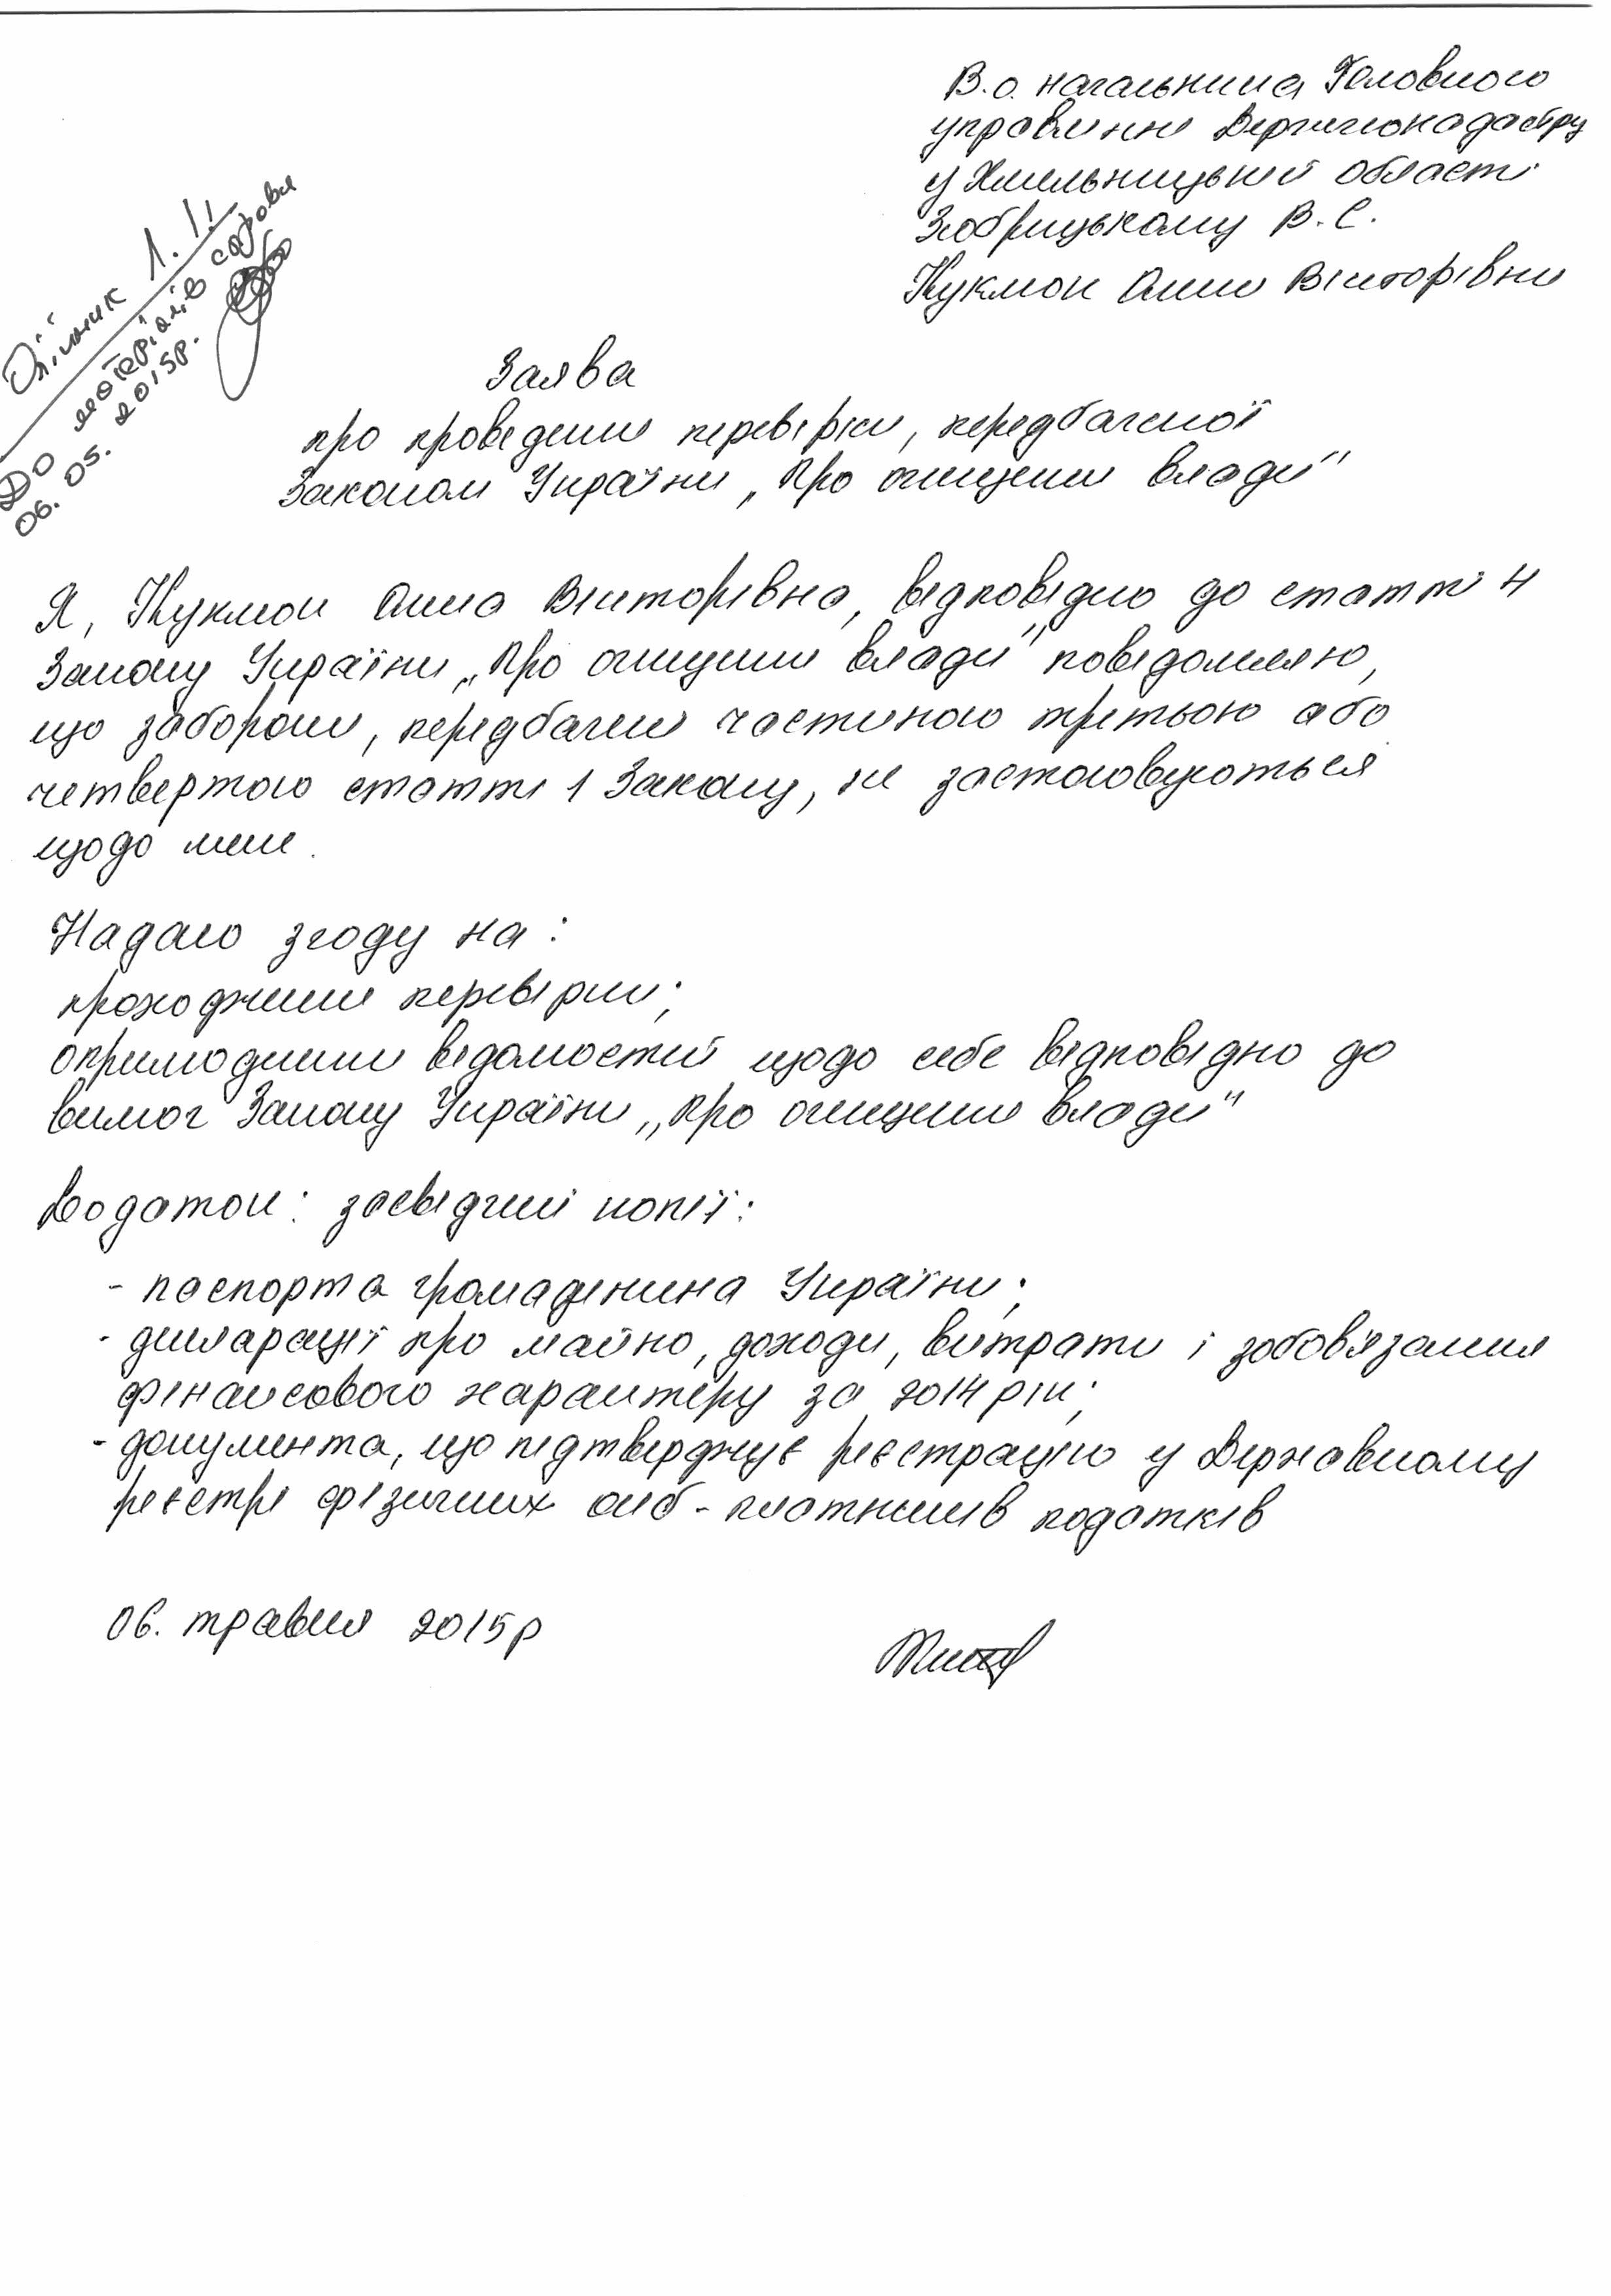 В.о. начальника Головного
управління Держгеокадастру
у Хмельницькій області
Зюбрицькому В. С.
Кукмон Анни Вікторівни
Олійник Л. І.
До матеріалів
06. 05. 2015р.
Заява
про проведення перевірки, передбаченої
Законом України „Про очищення влади"
Я, Кукмон Анна Вікторівна, відповідно до статті 4
Закону України „Про очищення влади" повідомляю,
що заборони, передбачені частиною третьою або
четвертою статті 1 Закону, не застосовуються
щодо мене.
Надаю згоду на:
проходження перевірки;
оприлюднення відомостей щодо себе відповідно до
вимог Закону України „Про очищення влади"
Додаток: засвідчені копії:
- паспорта громадянина України;
- декларації про майно, доходи, витрати і зобов'язання
фінансового характеру за 2014 рік;
- документа, що підтверджує реєстрацію у Державному
реєстрі фізичних осіб - платників податків
06. травня 2015р